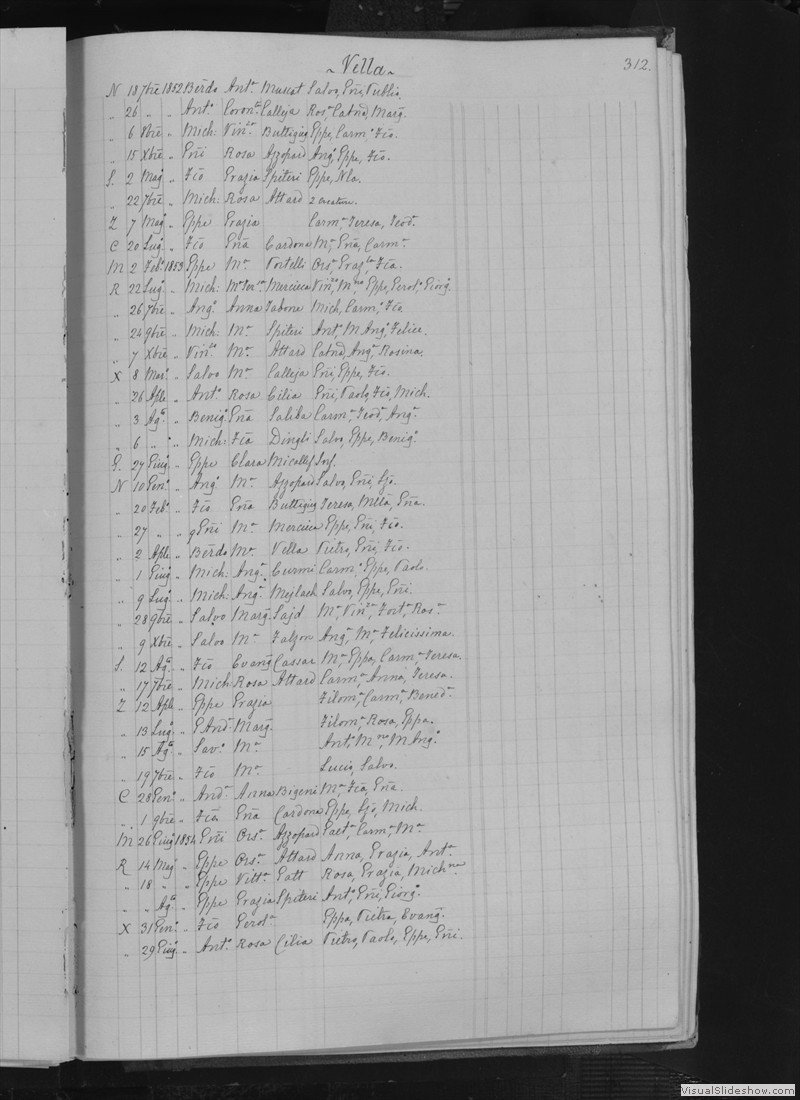 ~ Vella ~
312.
N 18 7bre 1852 Berdo Anta. Muscat Salvo, Eñi, Publia.
„ 26 „ „ Anto. Coronta. Calleja Rosa. Catnã, Marg̃.
„ 6 8bre „ Mich: Vinza. Buttigieg Eppe, Carmo. Fcõ.
„ 15 Xbre „ Eñi Rosa Azzopard Ango. Eppe, Fcõ.
S. 2 Mago „ Fcõ Grazia Spiteri Eppe, Nla.
„ 22 7bre „ Mich: Rosa Attard 2 creature.
Z 7 Mago „ Eppe Grazia Carma. Teresa, Teod.
C 20 Lugo. „ Fcõ Eña Cardona Ma. Eña, Carma.
M 2 Febo. 1853 Eppe Ma. Portelli Orsa. Fcã.
R 22 Lugo. „ Mich: Mercieca Eppe, Giorgo.
„ 26 7bre „ Ango. Anna Tabone Mich, Carmo. Fcã
„ 24 9bre „ Mich: Ma. Spiteri Anto. M. Ango. Felice.
„ 7 Xbre „ Vinzo. Ma. Attard Catnã, Anga. Rosina.
X 8 Maro. „ Salvo Ma. Calleja Eñi, Eppe, Fcõ.
„ 26 Aple „ Anto. Rosa Cilia Eñi, Paolo, Fcõ, Mich.
„ 3 Agto. „ Benigo. Eña Saliba Carma. Teod. Anga.
„ 6 „ „ Mich: Fcã Dingli Salvo, Eppe, Benigo.
G. 27 Giugo „ Eppe Clara Micallef
N 10 Geno. „ Ango. Ma. Azzopard Salvo, Eñi,
„ 20 Febo. „ Fcõ Eña Buttigieg Teresa, Eña.
„ 27 „ „ Eñi Ma. Mercieca Eppe, Eñi, Fcõ.
„ 2 Aple „ Berdo Ma. Vella Pietro, Eñi, Fcõ.
„ 1 Giugo „ Mich: Anga. Curmi Carmo. Eppe, Paolo.
„ 9 Lugo. „ Mich: Anga. Mejlach Salvo, Eppe, Eñi.
„ 28 9bre „ Salvo Marg̃. Sajd Ma. Vinza. Forta. Rosa.
„ 9 Xbre „ Salvo Ma. Falzon Anga. Ma. Felicissima.
S. 12 Agto. „ Fcõ Evang̃ Cassar Ma. Eppa, Carma. Teresa.
„ 17 7bre „ Mich: Rosa Attard Carma. Anna, Teresa.
Z 12 Aple „ Eppe Grazia Filoma. Carma. Beneda.
„ 13 Lugo. „ Marg̃. Filoma. Rosa, Eppa.
„ 15 Agto. „ Savo. Ma. Anto. M. Ango.
„ 19 7bre „ Fcõ Ma. Lucio, Salvo.
C 28 Geno. „ Anda. Anna Bigeni Ma. Fcã, Eña.
„ 1 9bre „ Fcõ Eña Cardona Eppe, Mich.
M 26 Giugo 1854 Eñi Orsa. Azzopard Gaeta. Carma. Ma.
R 14 Mago „ Eppe Orsa. Attard Anna, Grazia, Anta.
„ 18 „ „ Eppe Vitta. Gatt Rosa, Grazia, Michna.
„ „ Agto. „ Eppe Grazia Spiteri Anto. Eñi, Giorgo.
X 31 Geno. „ Fcõ Gerola. Eppa, Pietra, Evang̃.
„ 29 Giugo. „ Anto. Rosa Cilia Pietro, Paolo, Eppe, Eñi.
VisualSlideshow.com